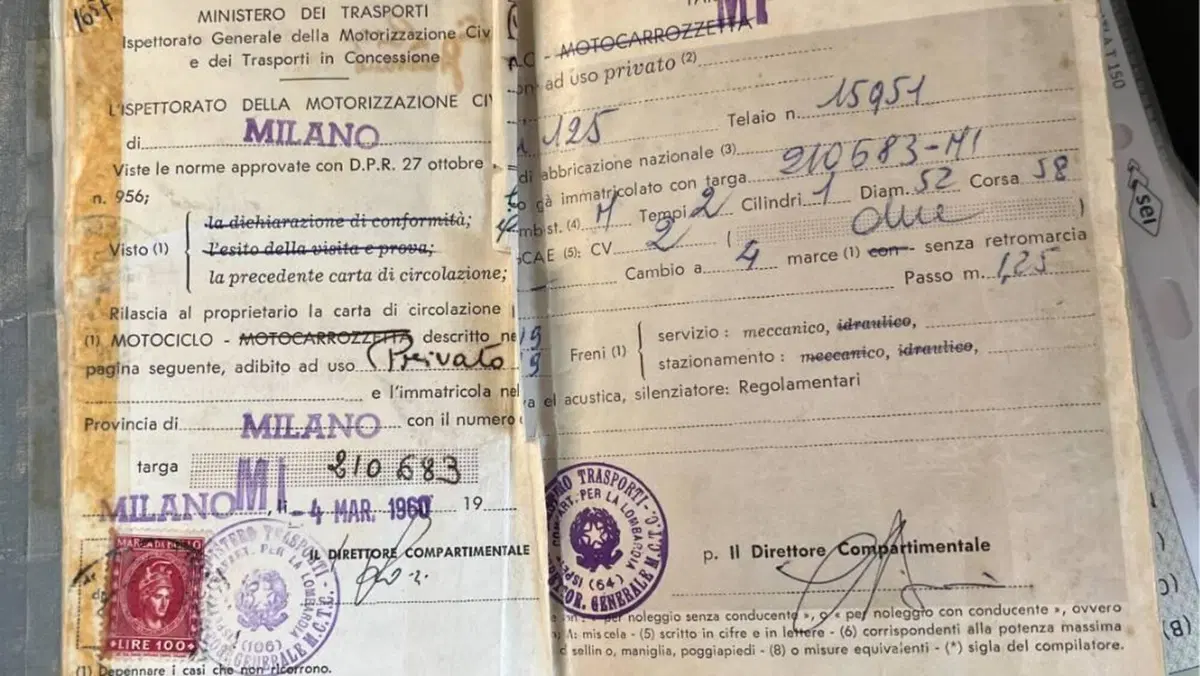 1657
MINISTERO DEI TRASPORTI
Ispettorato Generale della Motorizzazione Civ
e dei Trasporti in Concessione
L'ISPETTORATO DELLA MOTORIZZAZIONE CIV
di MILANO
Viste le norme approvate con D.P.R. 27 ottobre
n. 956;
Visto (1)
la dichiarazione di conformità;
l'esito della visita e prova;
la precedente carta di circolazione;
Rilascia al proprietario la carta di circolazione
(1) MOTOCICLO - MOTOCARROZZETTA descritto ne
pagina seguente, adibito ad uso Privato
e l'immatricola nel
Provincia di MILANO con il numero
targa MI 210683
MILANO, lì - 4 MAR. 1960 19
IL DIRETTORE COMPARTIMENTALE
MARCA DA BOLLO
LIRE 100
(106)
(1) Depennare i casi che non ricorrono.
MI
- MOTOCARROZZETTA
ad uso privato (2)
125 Telaio n. 15951
abbricazione nazionale (3)
già immatricolato con targa 210683-MI
mbist. (4) M Tempi 2 Cilindri 1 Diam. 52 Corsa 58
CAE (5): CV 2 ( due )
Cambio a 4 marce (1) con - senza retromarcia
Passo m. 1,25
Freni (1)
servizio : meccanico, idraulico,
stazionamento : meccanico, idraulico,
a el acustica, silenziatore: Regolamentari
TRASPORTI
COMPART. PER LA LOMBARDIA
(64)
GENERALE M.C.T.C.
p. Il Direttore Compartimentale
per noleggio senza conducente », o « per noleggio con conducente », ovvero
M: miscela - (5) scritto in cifre e in lettere - (6) corrispondenti alla potenza massima
sellino, maniglia, poggiapiedi - (8) o misure equivalenti - (*) sigla del compilatore.
MAT 150
sei
(B)